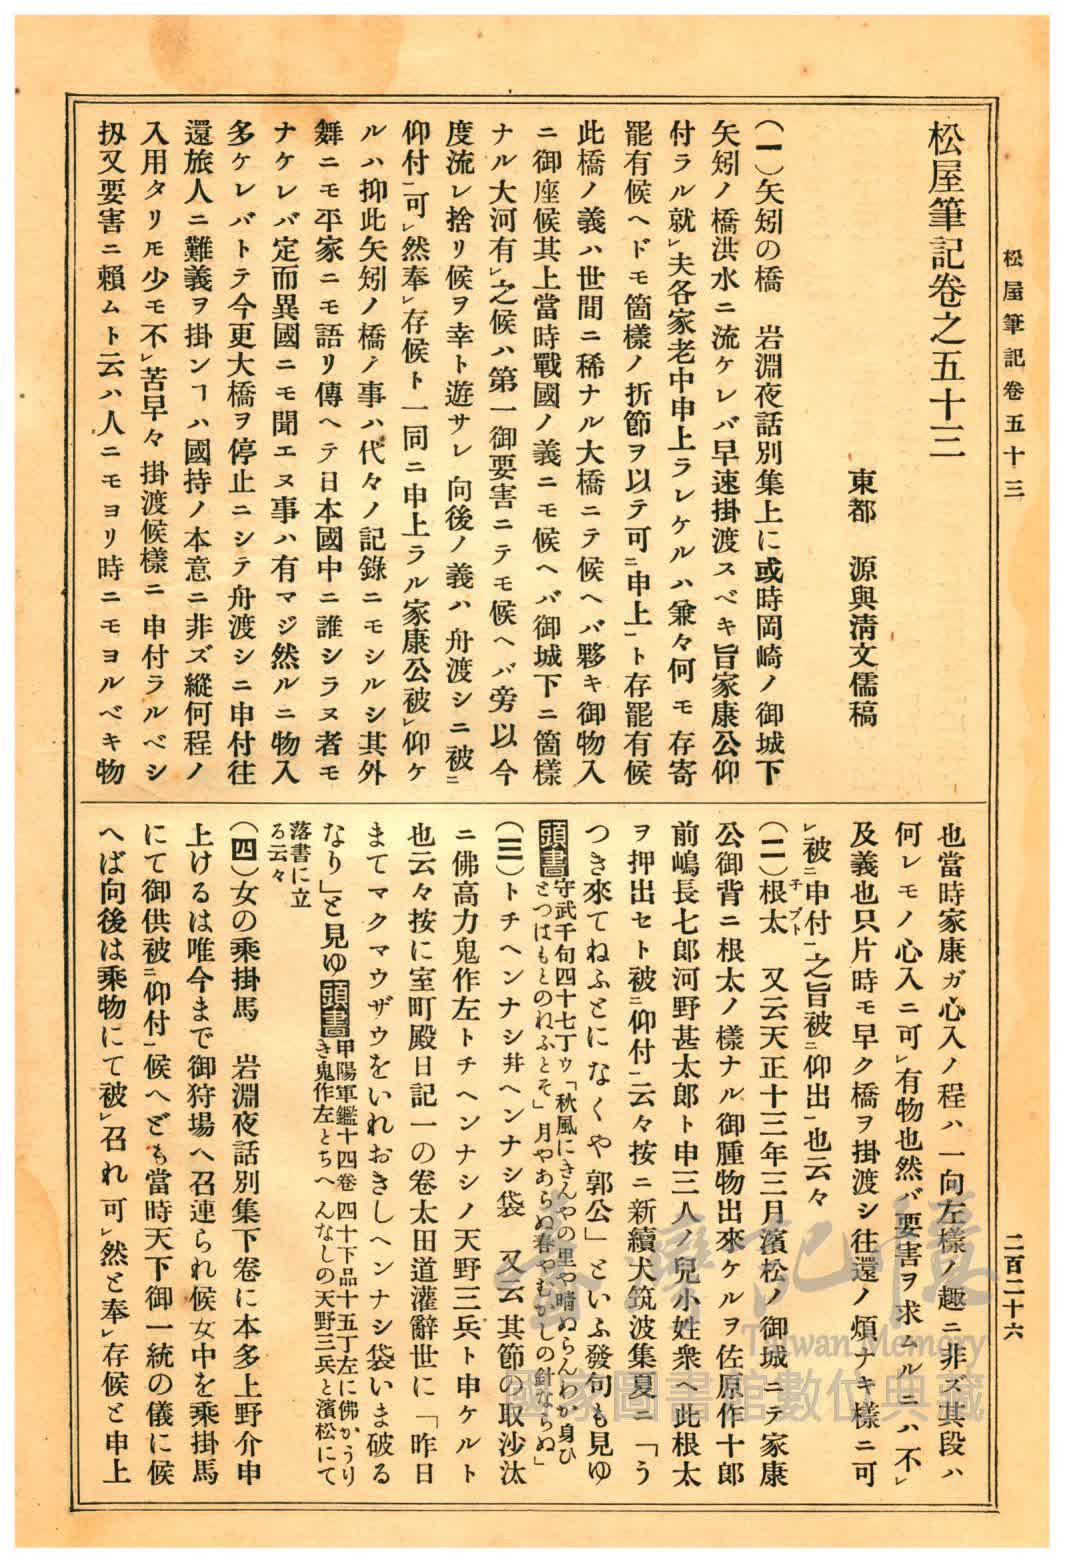 松屋筆記卷五十三
二百二十六
松屋筆記卷之五十三
東都　源與清文儒稿
(一)矢矧の橋　岩淵夜話別集上に或時岡崎ノ御城下
矢矧ノ橋洪水ニ流ケレバ早速掛渡スベキ旨家康公仰
付ラル就㆑夫各家老中申上ラレケルハ兼々何モ存寄
罷有候ヘドモ箇樣ノ折節ヲ以テ可㆓申上㆒ト存罷有候
此橋ノ義ハ世間ニ稀ナル大橋ニテ候ヘバ夥キ御物入
ニ御座候其上當時戰國ノ義ニモ候ヘバ御城下ニ箇樣
ナル大河有㆑之候ハ第一御要害ニテモ候ヘバ旁以今
度流レ捨リ候ヲ幸ト遊サレ向後ノ義ハ舟渡シニ被㆓
仰付㆒可㆑然奉㆑存候ト一同ニ申上ラル家康公被㆑仰ケ
ルハ抑此矢矧ノ橋ノ事ハ代々ノ記錄ニモシルシ其外
舞ニモ平家ニモ語リ傳ヘテ日本國中ニ誰シラヌ者モ
ナケレバ定而異國ニモ聞エヌ事ハ有マジ然ルニ物入
多ケレバトテ今更大橋ヲ停止ニシテ舟渡シニ申付往
還旅人ニ難義ヲ掛ンヿハ國持ノ本意ニ非ズ縱何程ノ
入用タリ𪜈少モ不㆑苦早々掛渡候樣ニ申付ラルベシ
扨又要害ニ賴ムト云ハ人ニモヨリ時ニモヨルベキ物
也當時家康ガ心入ノ程ハ一向左樣ノ趣ニ非ズ其段ハ
何レモノ心入ニ可㆑有物也然バ要害ヲ求ムルニハ不㆑
及義也只片時モ早ク橋ヲ掛渡シ往還ノ煩ナキ樣ニ可
㆑被㆓申付㆒之旨被㆓仰出㆒也云々
(二)根太　又云天正十三年三月濱松ノ御城ニテ家康
公御背ニ根太ノ樣ナル御腫物出來ケルヲ佐原作十郎
前嶋長七郎河野甚太郎ト申三人ノ兒小姓衆ヘ此根太
ヲ押出セト被㆓仰付㆒云々按ニ新續犬筑波集夏ニ「う
つき來てねふとになくや郭公」といふ發句も見ゆ
頭書守武千句四十七丁ゥ「秋風にきんやの里や晴ぬらんわか身ひ
とつはもとのねふとそ」月やあらぬ春やむかしの針ならぬ」
(三)トチヘンナシ幷ヘンナシ袋　又云其節の取沙汰
ニ佛高力鬼作左トチヘンナシノ天野三兵ト申ケルト
也云々按に室町殿日記一の卷太田道灌辭世に「昨日
まてマクマウザウをいれおきしヘンナシ袋いま破る
なり」と見ゆ頭書甲陽軍鑑十四卷四十下品十五丁左に佛かうり
き鬼作左とちへんなしの天野三兵と濱松にて
落書に立
る云々
(四)女の乘掛馬　岩淵夜話別集下卷に本多上野介申
上けるは唯今まで御狩場へ召連られ候女中を乘掛馬
にて御供被㆓仰付㆒候へども當時天下御一統の儀に候
へば向後は乘物にて被㆑召れ可㆑然と奉㆑存候と申上
臺灣記憶
Taiwan Memory
國家圖書館數位典藏